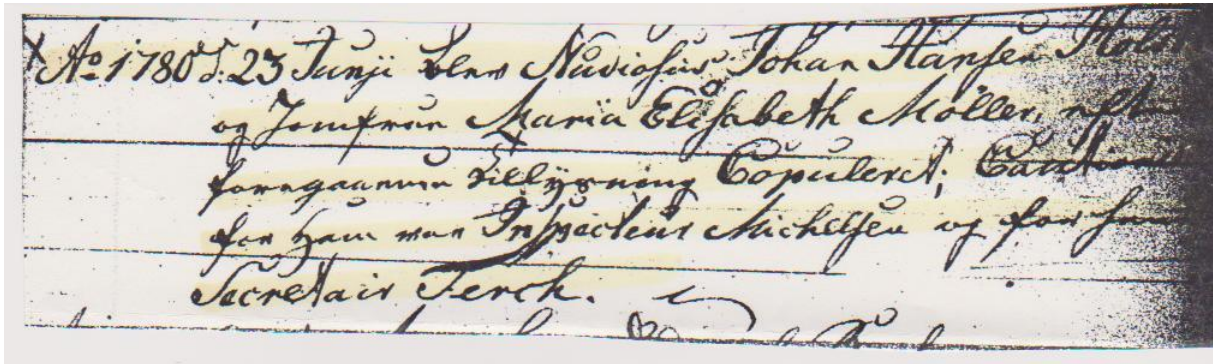 Aº 1780 d: 23 Junji blev Studiosus Johan Hansen Holm
og Jomfrue Maria Elisabeth Möller, eft
foregaaende Tillysning Copuleret; Caution
for ham var Inspecteur Michelsen og for
Secretair Ferch.